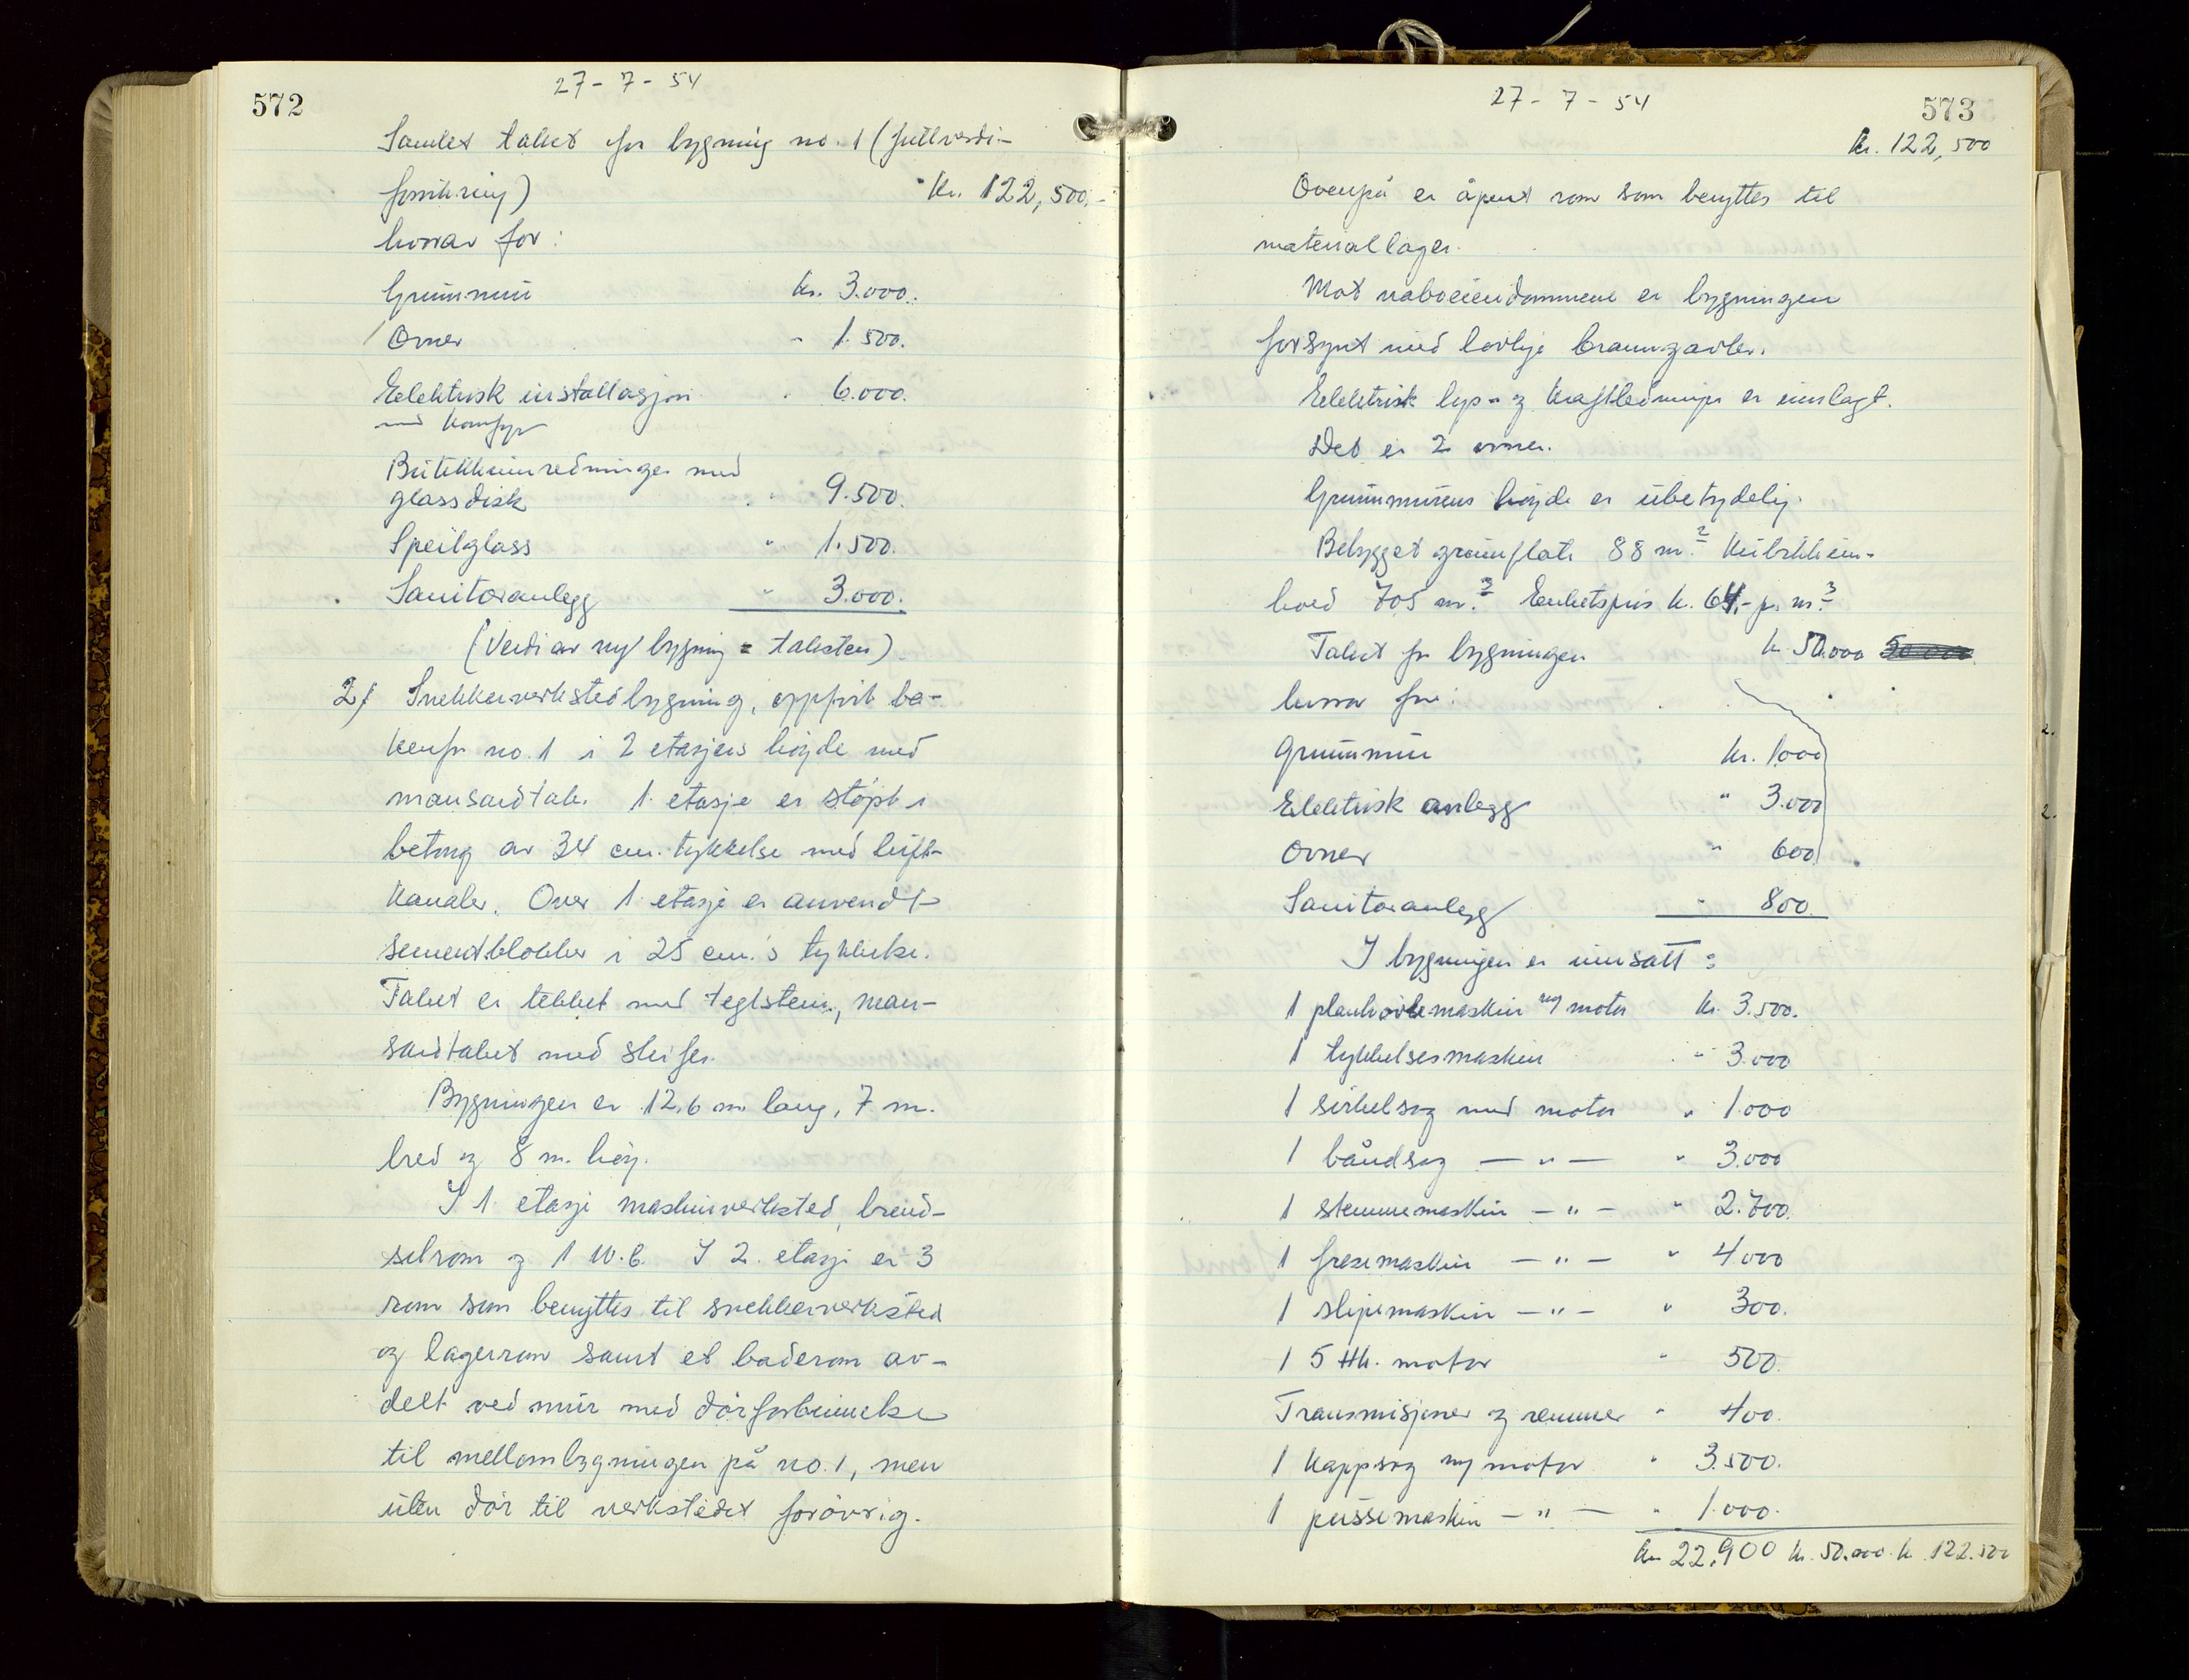 572
27-7-54
Samlet takst for bygning no. 1 (fullverdi-
forsikring) Kr. 122,500,-
hvorav for:
Grunnmur kr. 3.000.
Ovner " 1.500.
Elektrisk installasjon " 6.000.
med komfyr
Butikkinnredninger med
glassdisk " 9.500.
Speilglass " 1.500.
Sanitæranlegg " 3.000.
(Verdi av ny bygning = taksten)
2/ Snekkerverkstedbygning, oppført ba-
kenfor no. 1 i 2 etasjers høyde med
mansardtak. 1. etasje er støpt i
betong av 34 cm. tykkelse med luft-
kanaler. Over 1 etasje er anvendt
sementblokker i 25 cm.'s tykkelse.
Taket er tekket med teglstein, man-
sardtaket med skifer.
Bygningen er 12,6 m. lang, 7 m.
bred og 8 m. høy.
I 1. etasje maskinverksted, brend-
selrom og 1 W.C. I 2. etasje er 3
rom som benyttes til snekkerverksted
og lagerrom samt et baderom av-
delt ved mur med dørforbinnelse
til mellombygningen på no. 1, men
uten dør til verkstedet forøvrig.
27-7-54
573
Kr. 122,500
Ovenpå er åpent rom som benyttes til
materiallager.
Mot naboeiendommene er bygningen
forsynt med lovlige branngavler.
Elektrisk lys- og kraftledninger er innlagt.
Det er 2 ovner.
Grunnmurens høyde er ubetydelig.
Bebygget grunnflate 88 m.² Kubikkinn-
hold 705 m.³ Enhetspris kr. 64,- pr. m.³
Takst for bygningen kr. 50.000 50.000.
hvorav for:
Grunnmur kr. 1.000
Elektrisk anlegg " 3.000
Ovner " 600
Sanitæranlegg " 800.
I bygningen er innsatt:
1 planhøvlemaskin m/ motor kr. 3.500.
1 tykkelsesmaskin " 3.000
1 sirkelsag med motor " 1.000
1 båndsag — " — " 3.000
1 stemmemaskin — " — " 2.700.
1 fresemaskin — " — " 4.000
1 slipemaskin — " — " 300.
1 5 Hk. motor " 500.
Transmisjoner og remmer " 400.
1 kappsag m/ motor " 3.500.
1 pussemaskin — " — " 1.000.
Kr. 22.900 kr. 50.000. kr. 122.500